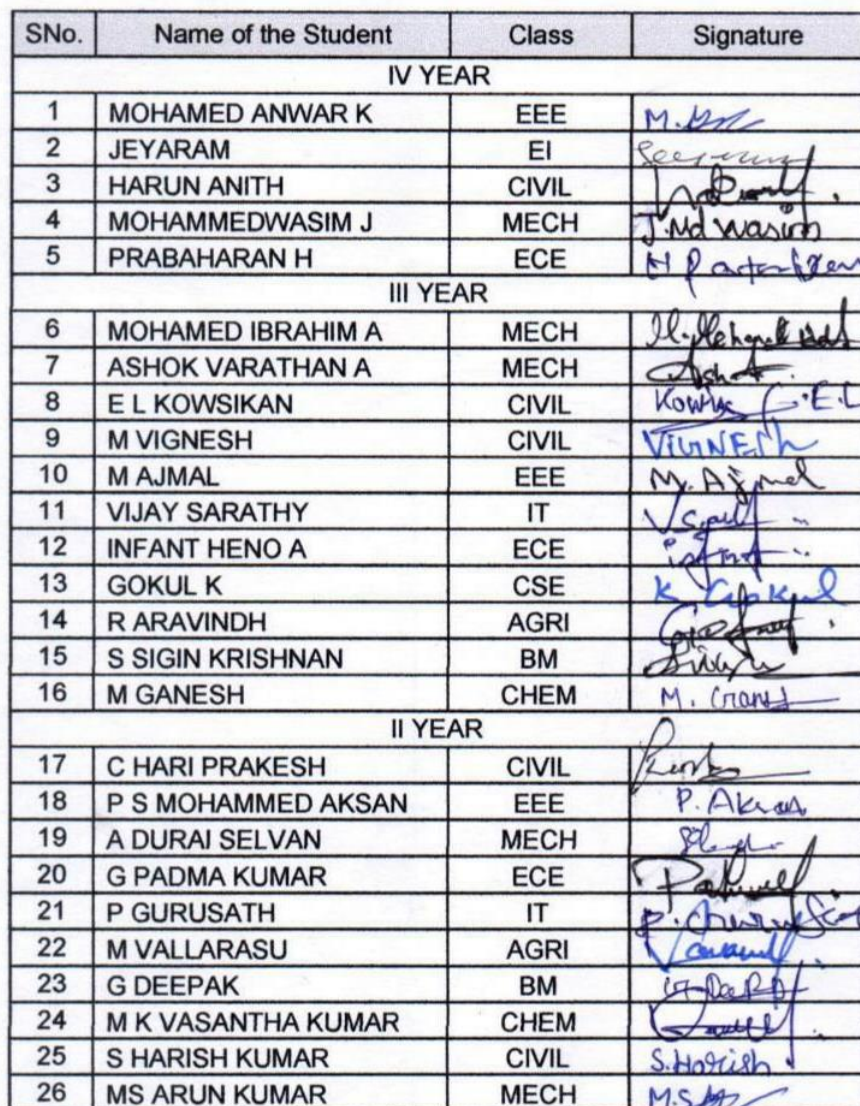 SNo. Name of the Student Class Signature
IV YEAR
1 MOHAMED ANWAR K EEE
2 JEYARAM EI
3 HARUN ANITH CIVIL
4 MOHAMMEDWASIM J MECH J.Md Wasim
5 PRABAHARAN H ECE
III YEAR
6 MOHAMED IBRAHIM A MECH
7 ASHOK VARATHAN A MECH
8 E L KOWSIKAN CIVIL
9 M VIGNESH CIVIL VIGNESh
10 M AJMAL EEE M. Ajmal
11 VIJAY SARATHY IT
12 INFANT HENO A ECE
13 GOKUL K CSE K Gokul
14 R ARAVINDH AGRI
15 S SIGIN KRISHNAN BM
16 M GANESH CHEM
II YEAR
17 C HARI PRAKESH CIVIL
18 P S MOHAMMED AKSAN EEE
19 A DURAI SELVAN MECH
20 G PADMA KUMAR ECE
21 P GURUSATH IT
22 M VALLARASU AGRI
23 G DEEPAK BM
24 M K VASANTHA KUMAR CHEM
25 S HARISH KUMAR CIVIL S.Harish
26 MS ARUN KUMAR MECH